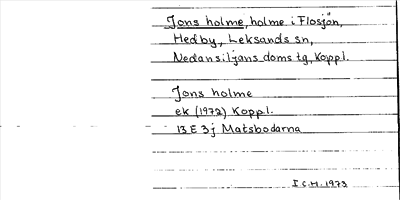 Jons holme, holme i Flosjön,
Hedby, Leksands sn,
Nedansiljans domstg, Koppl.
Jons holme
ek (1972) Koppl.
13 E 3 j Matsbodarna
I C.H. 1973